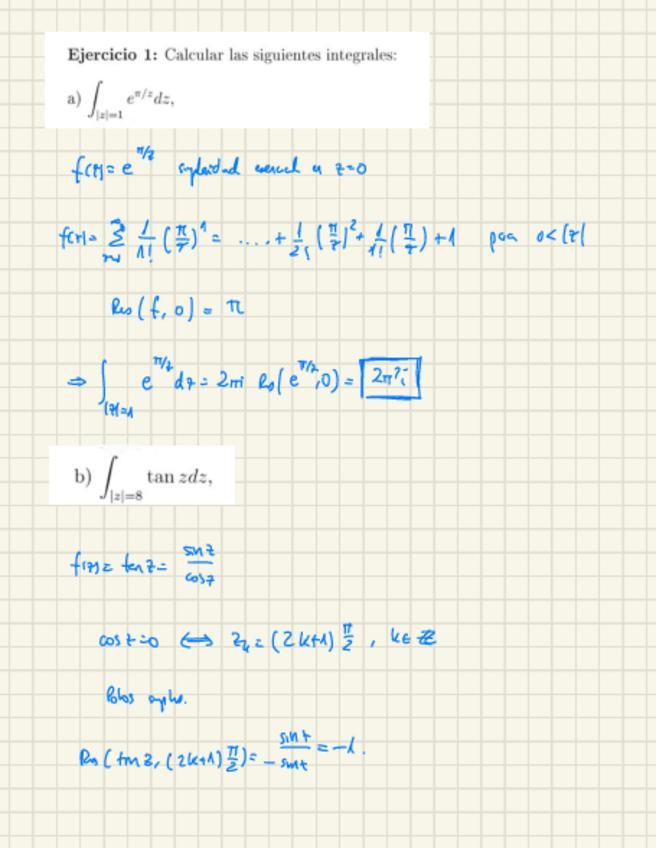 Ejercicio 1: Calcular las siguientes integrales:
a) ∫_{|z|=1} e^{π/z}dz,
f(z) = e^{π/z} singularidad esencial en z=0
f(z) = Σ 1/n! (π/z)^n = .... + 1/2! (π/z)^2 + 1/1! (π/z) + 1 para 0<|z|
Res(f, 0) = π
⇒ ∫_{|z|=1} e^{π/z} dz = 2πi Res(e^{π/z}, 0) = 2π²i
b) ∫_{|z|=8} tan zdz,
f(z) = tan z = sin z / cos z
cos z = 0 ⟺ z_k = (2k+1) π/2 , k∈ℤ
Polos
Res(tan z, (2k+1) π/2) = sin z / - sin z = -1.